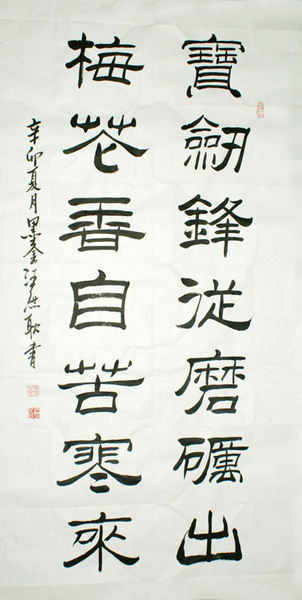 寶劔鋒從磨礪出
梅花香自苦寒來
辛卯夏月墨奎汪庶耿書